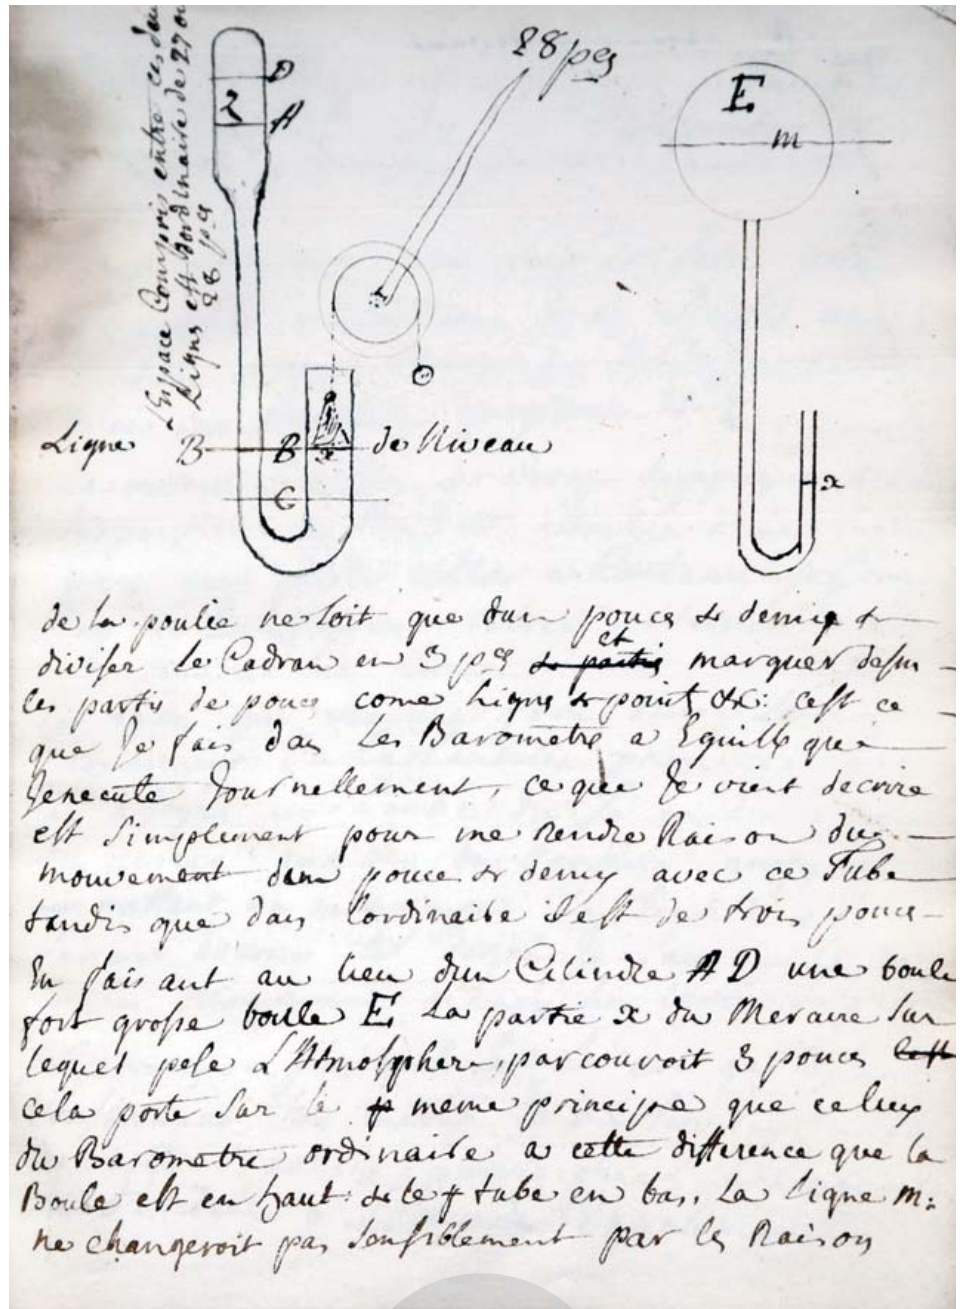 L'Espace Compris entre ces deux
Lignes est d'ordinaire de 27 ou
28 pes
28 pes
D
2
A
E
m
Ligne B B x de Niveau
C
x
de la poulie ne soit que dun pouces & demie &
diviser le Cadran en 3 pes & partis et marquer dessu
les partis de pouces come Lignes & points &c: cest ce
que Je fais dans Les Barometre a Eguille que
Jenecute Journellement, ce que Je vient decrire
est Simplement pour me Rendre Raison du
mouvement dun pouce & demy avec ce Tube
tandis que dans lordinaire il est de trois pouce
En faisant au lieu dun Cilindre AD une boule
fort grosse boule E La partie x du Mercure Sur
lequel pese L'Atmosphere, parcouroit 3 pouces
cela porte Sur le meme principe que celuy
du Barometre ordinaire a cette difference que la
Boule est en haut & le tube en bas, La ligne m:
ne changeroit pas Sensiblement par les Raison